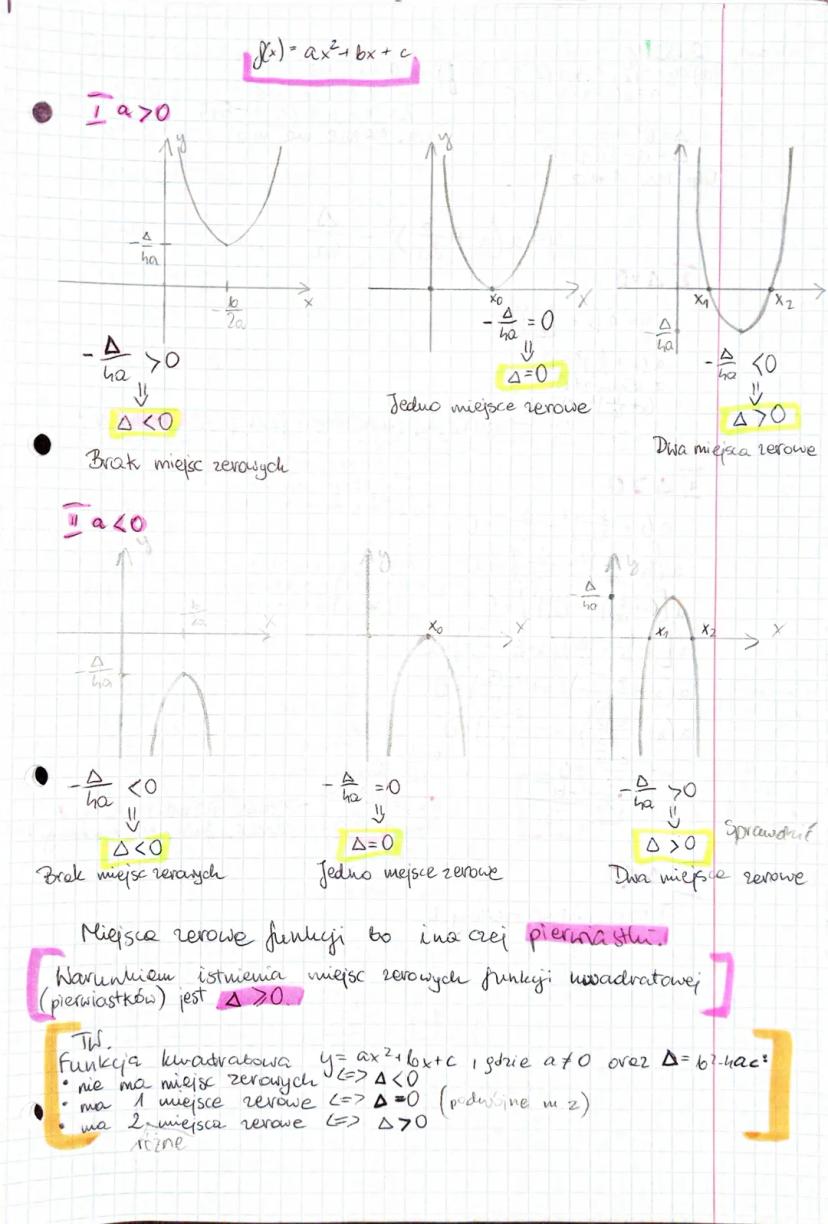 f(x) = ax²+bx+c
I a>0
y
-Δ/4a
-b/2a
x
-Δ/4a >0
⇓
Δ<0
Brak miejsc zerowych
y
x₀
x
-Δ/4a = 0
⇓
Δ=0
Jedno miejsce zerowe
x₁ x₂
-Δ/4a
-Δ/4a <0
⇓
Δ>0
Dwa miejsca zerowe
II a<0
y
-b/2a
x
-Δ/4a
-Δ/4a <0
⇓
Δ<0
Brak miejsc zerowych
y
x₀
x
-Δ/4a =0
⇓
Δ=0
Jedno mejsce zerowe
y
-Δ/4a
x₁ x₂
x
-Δ/4a >0
⇓
Δ>0
Sprawdzić
Dwa miejsca zerowe
Miejsca zerowe funkcji to inaczej pierwiastki.
Warunkiem istnienia miejsc zerowych funkcji kwadratowej
(pierwiastków) jest Δ ≥0.
TW.
Funkcja kwadratowa y= ax²+bx+c, gdzie a≠0 oraz Δ=b²-4ac:
• nie ma miejsc zerowych <=> Δ<0
• ma 1 miejsce zerowe <=> Δ=0 (podwójne m z)
• ma 2 miejsca zerowe <=> Δ>0
różne